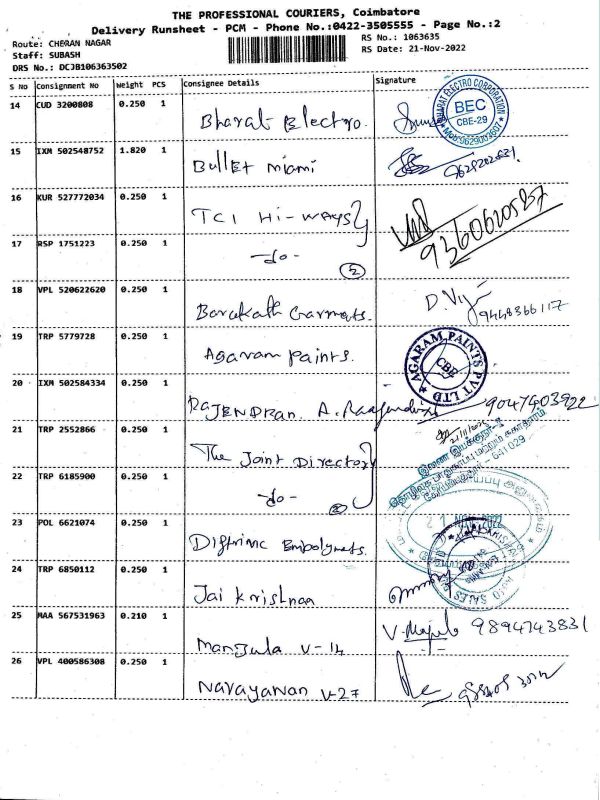 THE PROFESSIONAL COURIERS, Coimbatore
Delivery Runsheet - PCM - Phone No.:0422-3505555 - Page No.:2
Route: CHERAN NAGAR
RS No.: 1063635
Staff: SUBASH
RS Date: 21-Nov-2022
DRS No.: DCJB106363502
S No Consignment No Weight PCS Consignee Details Signature
14 CUD 3200808 0.250 1 Bharat Electro.
BHARAT ELECTRO CORPORATION
BEC
CBE-29
15 IXM 502548752 1.820 1 Bullet miami
16 KUR 527772034 0.250 1 TCI Hi-WAYS
9360620587
17 RSP 1751223 0.250 1 -do-
2
18 VPL 520622620 0.250 1 Barakath Garments. D. Vijay
9448366117
19 TRP 5779728 0.250 1 Agaram paints.
AGARAM PAINTS PVT LTD
CBE
20 IXM 502584334 0.250 1 RAJENDRAN. A. Raajendran 9047403922
21 TRP 2552866 0.250 1 The Joint Director
641 029
22 TRP 6185900 0.250 1 -do-
2
21 NOV 2022
23 POL 6621074 0.250 1
24 TRP 6850112 0.250 1 Jai krishnaa
25 MAA 567531963 0.210 1 Manjula V-14 V. Manjula 9894743831
26 VPL 400586308 0.250 1 Narayanan V-27